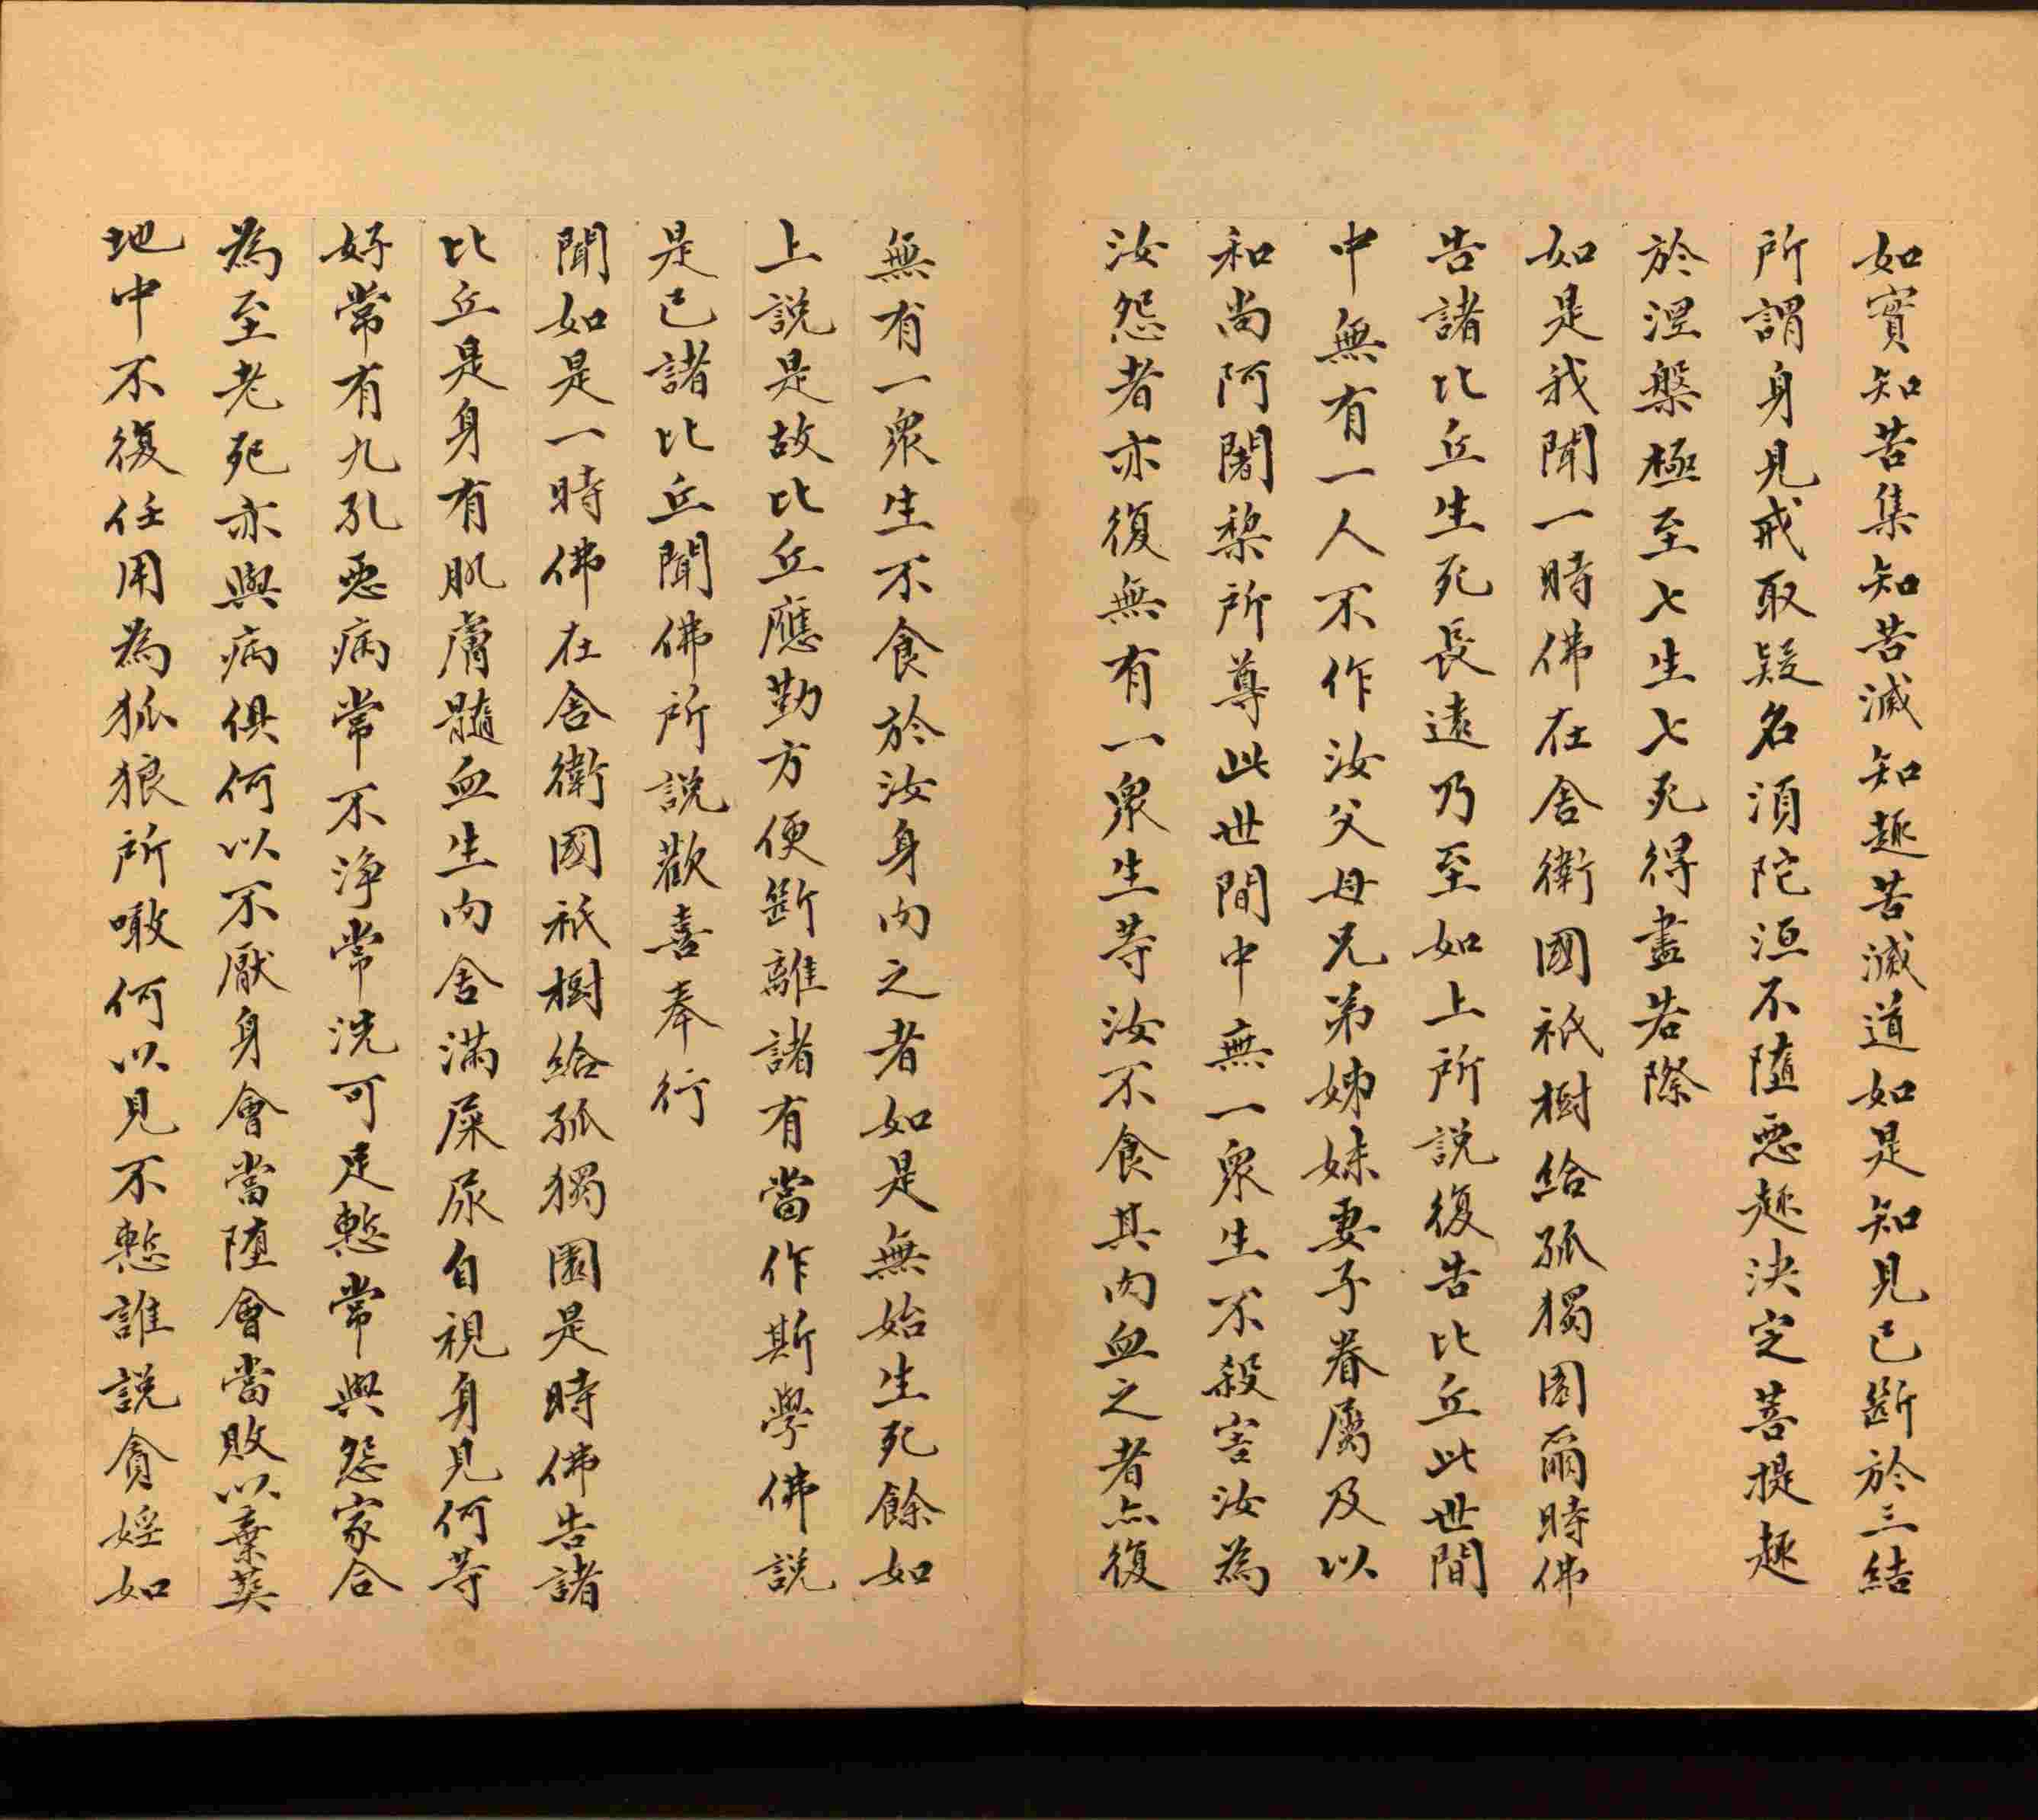 如實知苦集知苦滅知趣苦滅道如是知見已斷於三結
所謂身見戒取疑名須陀洹不墮惡趣決定菩提趣
於涅槃極至七生七死得盡苦際
如是我聞一時佛在舍衛國祇樹給孤獨園爾時佛
告諸比丘生死長遠乃至如上所說復告比丘此世間
中無有一人不作汝父母兄弟姊妹妻子眷屬及以
和尚阿闍梨所尊此世間中無一眾生不殺害汝為
汝怨者亦復無有一眾生等汝不食其肉血之者亦復
無有一眾生不食於汝身肉之者如是無始生死餘如
上說是故比丘應勤方便斷離諸有當作斯學佛說
是已諸比丘聞佛所說歡喜奉行
聞如是一時佛在舍衛國祇樹給孤獨園是時佛告諸
比丘是身有肌膚髓血生肉含滿屎尿自視身見何等
好常有九孔惡病常不淨常洗可足慙常與怨家合
為至老死亦與病俱何以不厭身會當墮會當敗以棄葬
地中不復任用為狐狼所噉何以見不慙誰說貪婬如